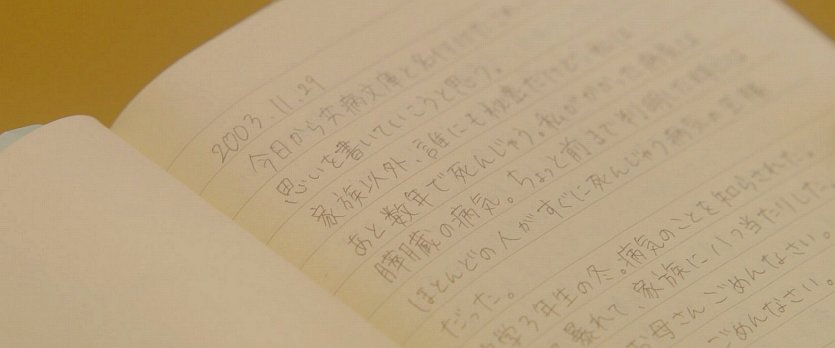 2003.11.29
今日から共病文庫と名付けた
思いを書いていこうと思う。
家族以外、誰にも秘密だけど私は
あと数年で死んじゃう。私がかかった病気は
膵臓の病気。ちょっと前まで判明した時には
ほとんどの人がすぐに死んじゃう病気の王様
だった。
学3年生の冬。病気のことを知らされた。
暴れて、家族に八つ当たりした
母さんごめんなさい。
ごめんなさい。